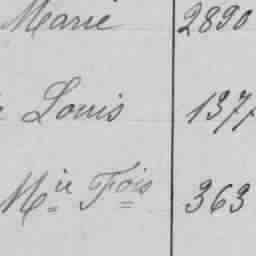 Marie 2890
Louis 137
Mie Fois 363